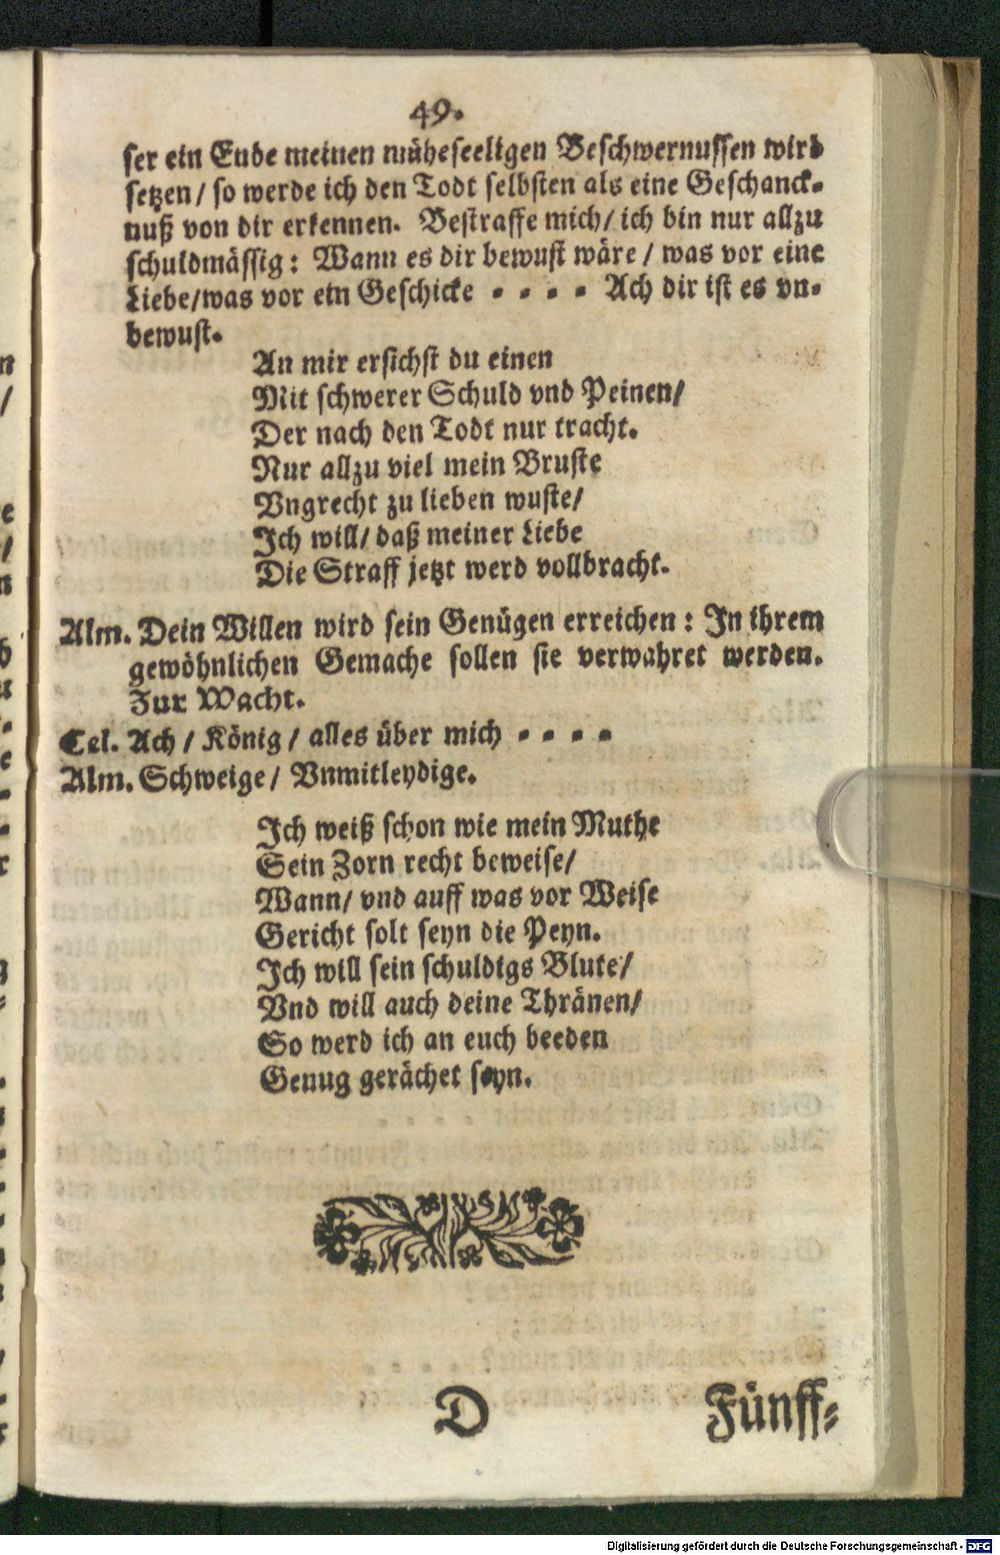 49.
ser ein Ende meinen müheseeligen Beschwernussen wird
setzen / so werde ich den Todt selbsten als eine Geschanck-
nuß von dir erkennen. Bestraffe mich / ich bin nur allzu
schuldmässig: Wann es dir bewust wäre / was vor eine
Liebe / was vor ein Geschicke - - - - Ach dir ist es vn-
bewust.
An mir ersichst du einen
Mit schwerer Schuld vnd Peinen /
Der nach den Todt nur tracht.
Nur allzu viel mein Bruste
Vngrecht zu lieben wuste /
Ich will / daß meiner Liebe
Die Straff jetzt werd vollbracht.
Alm. Dein Willen wird sein Genügen erreichen: In ihrem
gewöhnlichen Gemache sollen sie verwahret werden.
Zur Wacht.
Cel. Ach / König / alles über mich - - - -
Alm. Schweige / Vnmitleydige.
Ich weiß schon wie mein Muthe
Sein Zorn recht beweise /
Wann / vnd auff was vor Weise
Gericht solt seyn die Peyn.
Ich will sein schuldigs Blute /
Vnd will auch deine Thränen /
So werd ich an euch beeden
Genug gerächet seyn.
D Fünff-
Digitalisierung gefördert durch die Deutsche Forschungsgemeinschaft - DFG